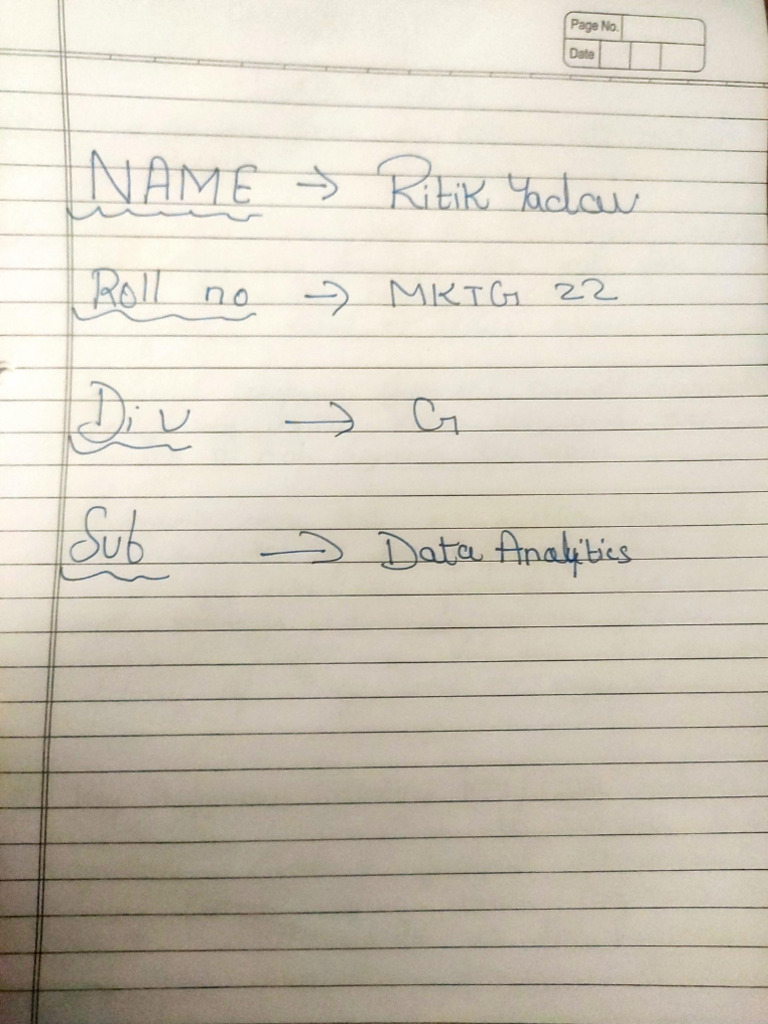 Page No.
Date
NAME → Ritik Yadav
Roll no → MKTG 22
Div → G
Sub → Data Analytics